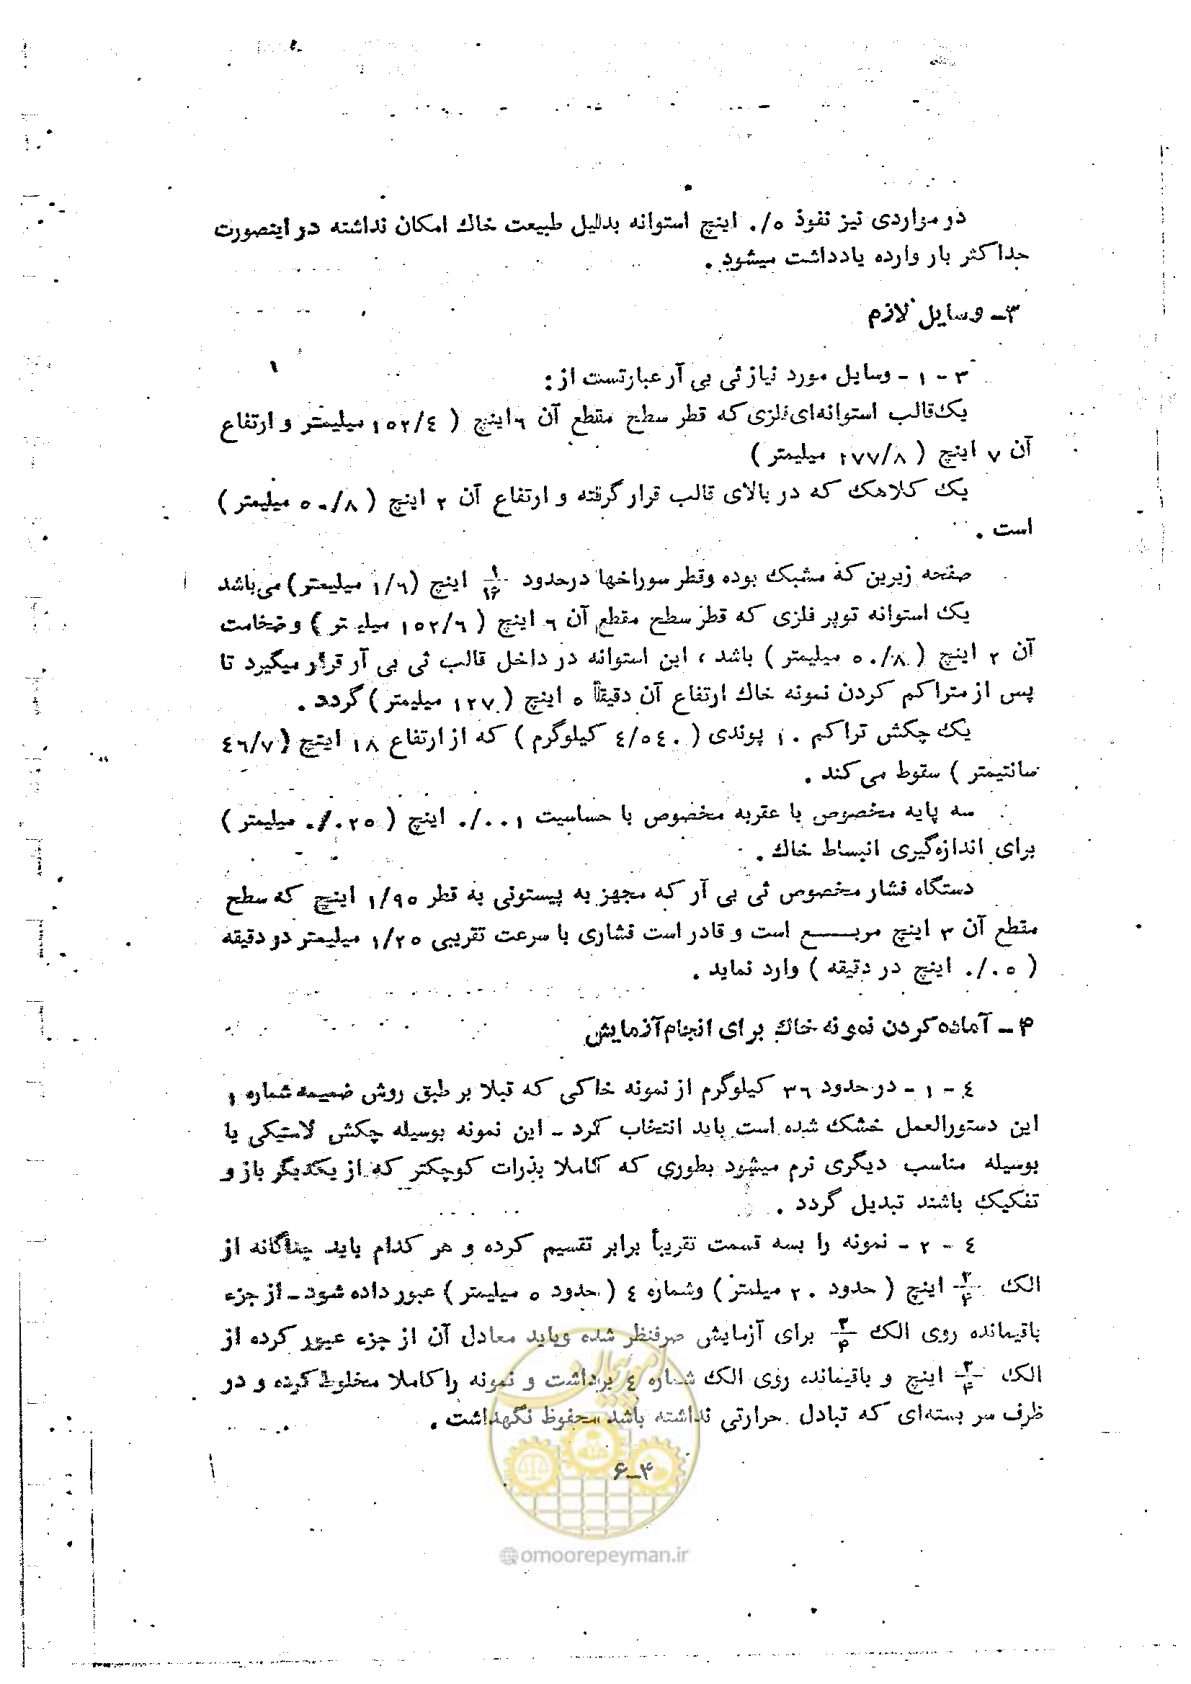 در مواردی نیز نفوذ ۰/۵ اینچ استوانه بدلیل طبیعت خاک امکان نداشته در اینصورت
حداکثر بار وارده یادداشت میشود .
۳ــ وسایل لازم
۳ - ۱ - وسایل مورد نیاز ئی بی آر عبارتست از :
یک قالب استوانه‌ای فلزی که قطر سطح مقطع آن ۶ اینچ ( ۱۵۲/۴ میلیمتر و ارتفاع
آن ۷ اینچ ( ۱۷۷/۸ میلیمتر )
یک کلاهک که در بالای قالب قرار گرفته و ارتفاع آن ۲ اینچ ( ۵۰/۸ میلیمتر )
است .
صفحه زیرین که مشبک بوده وقطر سوراخها درحدود ۱/۱۶ اینچ (۱/۶ میلیمتر) می‌باشد
یک استوانه توپر فلزی که قطر سطح مقطع آن ۶ اینچ ( ۱۵۲/۶ میلیمتر ) و ضخامت
آن ۲ اینچ ( ۵۰/۸ میلیمتر ) باشد ، این استوانه در داخل قالب ئی بی آر قرار میگیرد تا
پس از متراکم کردن نمونه خاک ارتفاع آن دقیقاً ۵ اینچ ( ۱۲۷ میلیمتر ) گردد .
یک چکش تراکم ۱۰ پوندی ( ۴/۵۴۰ کیلوگرم ) که از ارتفاع ۱۸ اینچ ( ۴۶/۷
سانتیمتر ) سقوط می‌کند .
سه پایه مخصوص با عقربه مخصوص با حساسیت ۰/۰۰۱ اینچ ( ۰/۰۲۵ میلیمتر )
برای اندازه‌گیری انبساط خاک .
دستگاه فشار مخصوص ئی بی آر که مجهز به پیستونی به قطر ۱/۹۵ اینچ که سطح
مقطع آن ۳ اینچ مربـــع است و قادر است فشاری با سرعت تقریبی ۱/۲۵ میلیمتر دو دقیقه
( ۰/۰۵ اینچ در دقیقه ) وارد نماید .
۴ ــ آماده کردن نمونه خاک برای انجام آزمایش
۴ - ۱ - در حدود ۳۶ کیلوگرم از نمونه خاکی که قبلا بر طبق روش ضمیمه شماره ۱
این دستورالعمل خشک شده است باید انتخاب کرد ــ این نمونه بوسیله چکش لاستیکی یا
بوسیله مناسب دیگری نرم میشود بطوری که کاملا بذرات کوچکتر که از یکدیگر باز و
تفکیک باشند تبدیل گردد .
۴ - ۲ - نمونه را بسه قسمت تقریباً برابر تقسیم کرده و هر کدام باید جداگانه از
الک ۳/۴ اینچ ( حدود ۲۰ میلمتر ) وشماره ۴ ( حدود ۵ میلیمتر ) عبور داده شود ــ از جزء
باقیمانده روی الک ۳/۴ برای آزمایش صرفنظر شده وباید معادل آن از جزء عبور کرده از
الک ۳/۴ اینچ و باقیمانده روی الک شماره ۴ برداشت و نمونه را کاملا مخلوط کرده و در
ظرف سر بسته‌ای که تبادل حرارتی نداشته باشد محفوظ نگهداشت .
۴ــ۶
امور پیمان
@omoorepeyman.ir